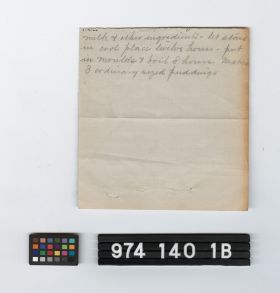 milk & other ingredients - let stand
in cool place twelve hours - put
in moulds & boil 8 hours. Makes
3 ordinary sized puddings
974 140 1B